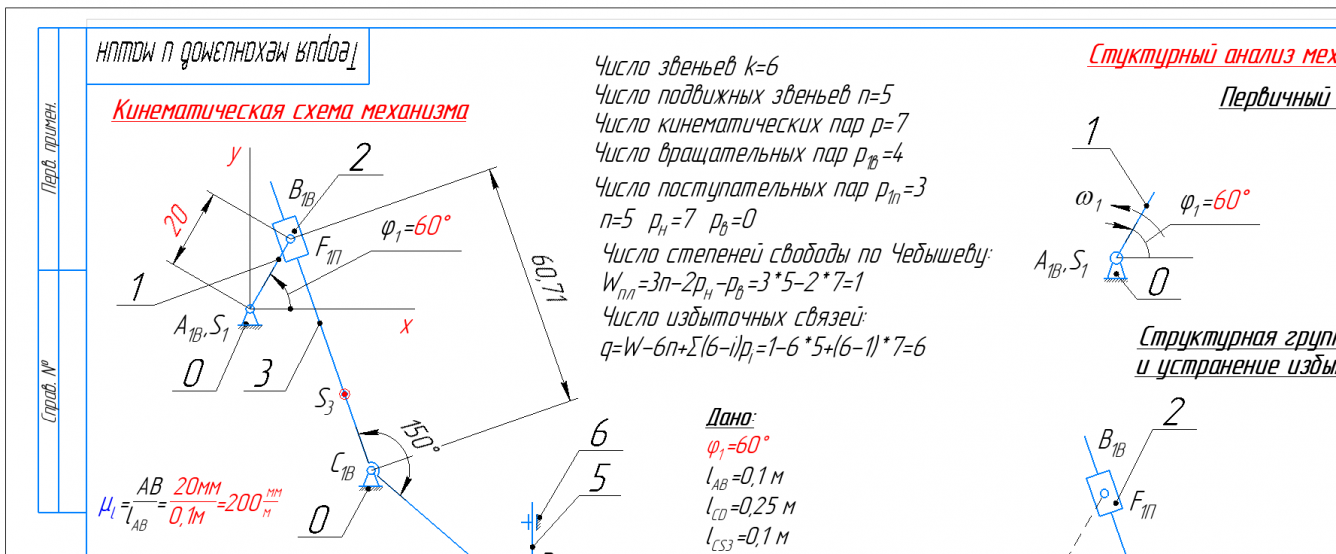 Теория механизмов и машин
Перв. примен.
Справ. №
Кинематическая схема механизма
y
2
B₁В
20
φ₁=60°
F₁П
1
60,71
A₁В,S₁
x
0
3
S₃
150°
C₁В
0
6
5
μₗ=AB/l_AB=20мм/0,1м=200 мм/м
Число звеньев k=6
Число подвижных звеньев n=5
Число кинематических пар p=7
Число вращательных пар p₁в=4
Число поступательных пар p₁п=3
n=5 pн=7 pв=0
Число степеней свободы по Чебышеву:
Wпл=3n-2pн-pв=3*5-2*7=1
Число избыточных связей:
q=W-6n+Σ(6-i)pᵢ=1-6*5+(6-1)*7=6
Дано:
φ₁=60°
l_AB=0,1 м
l_CD=0,25 м
l_CS3=0,1 м
Стуктурный анализ мех
Первичный
1
ω₁
φ₁=60°
A₁В,S₁
0
Структурная групп
и устранение избы
2
B₁В
F₁П